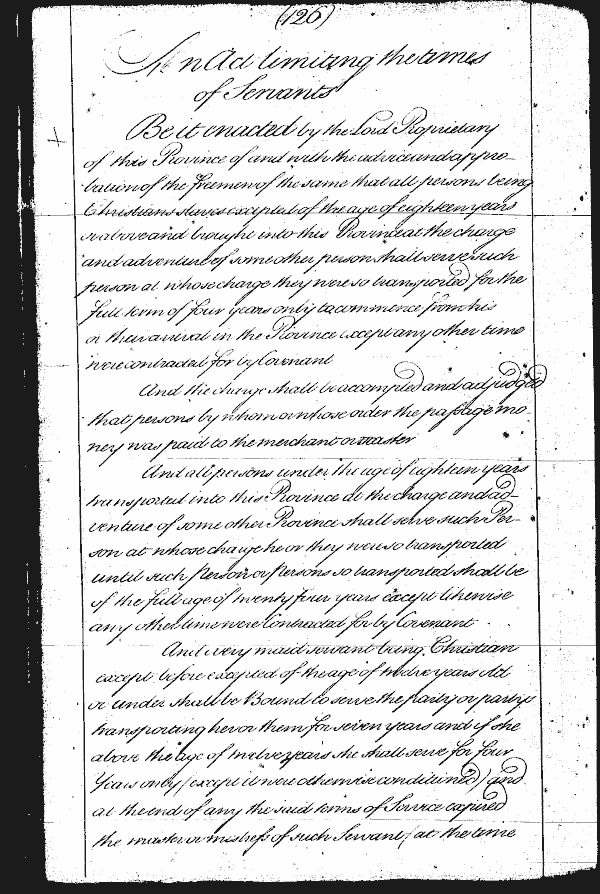 (126)
An Act limiting the times
of Servants
Be it enacted by the Lord Proprietary
of this Province of and with the advice and appro-
bation of the freemen of the same that all persons being
Christians slaves excepted of the age of eighteen years
or above and brought into this Province at the charge
and adventure of some other person shall serve such
person at whose charge they were so transported for the
full term of four years only to commence from his
or their arrival in the Province except any other time
were contracted for by Covenant
And the charge shall be accompted and adjudged
that persons by whom or whose order the passage mo-
ney was paid to the merchant or master
And all persons under the age of eighteen years
transported into this Province at the charge and ad-
venture of some other Province shall serve such Per-
son at whose charge he or they were so transported
until such Person or Persons so transported shall be
of the full age of twenty four years except likewise
any other time were Contracted for by Covenant
And every maid servant being Christian
except before excepted of the age of twelve years old
or under shall be Bound to serve the party or partys
transporting her or them for seven years and if she
above the age of twelve years she shall serve for four
Years only (except it were otherwise conditioned) and
at the end of any the said terms of Service expired
the master or mistress of such Servant (at the time